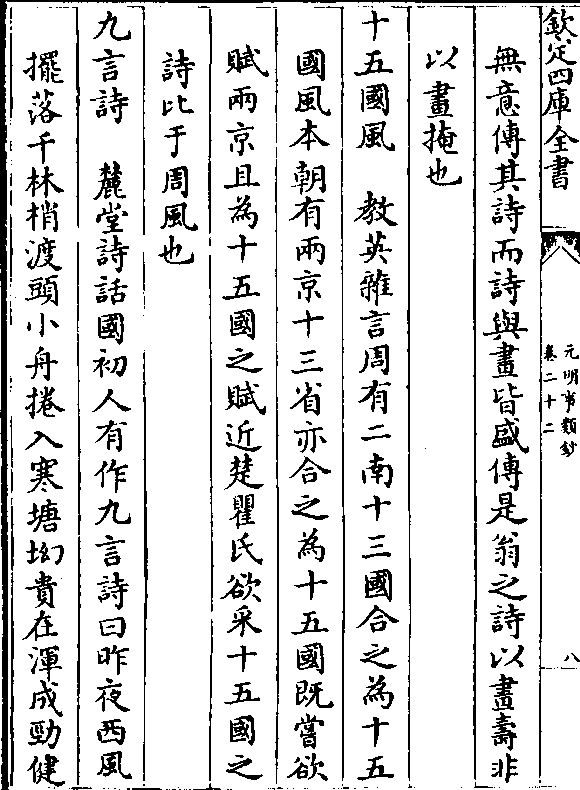 欽定四庫全書
元明事類鈔
卷二十二
八
無意傳其詩而詩與畫皆盛傳是翁之詩以畫壽非
以畫掩也
十五國風　敎英雜言周有二南十三國合之為十五
國風本朝有兩京十三省亦合之為十五國既嘗欲
賦兩京且為十五國之賦近楚瞿氏欲采十五國之
詩比于周風也
九言詩　麓堂詩話國初人有作九言詩曰昨夜西風
擺落千林梢渡頭小舟捲入寒塘坳貴在渾成勁健